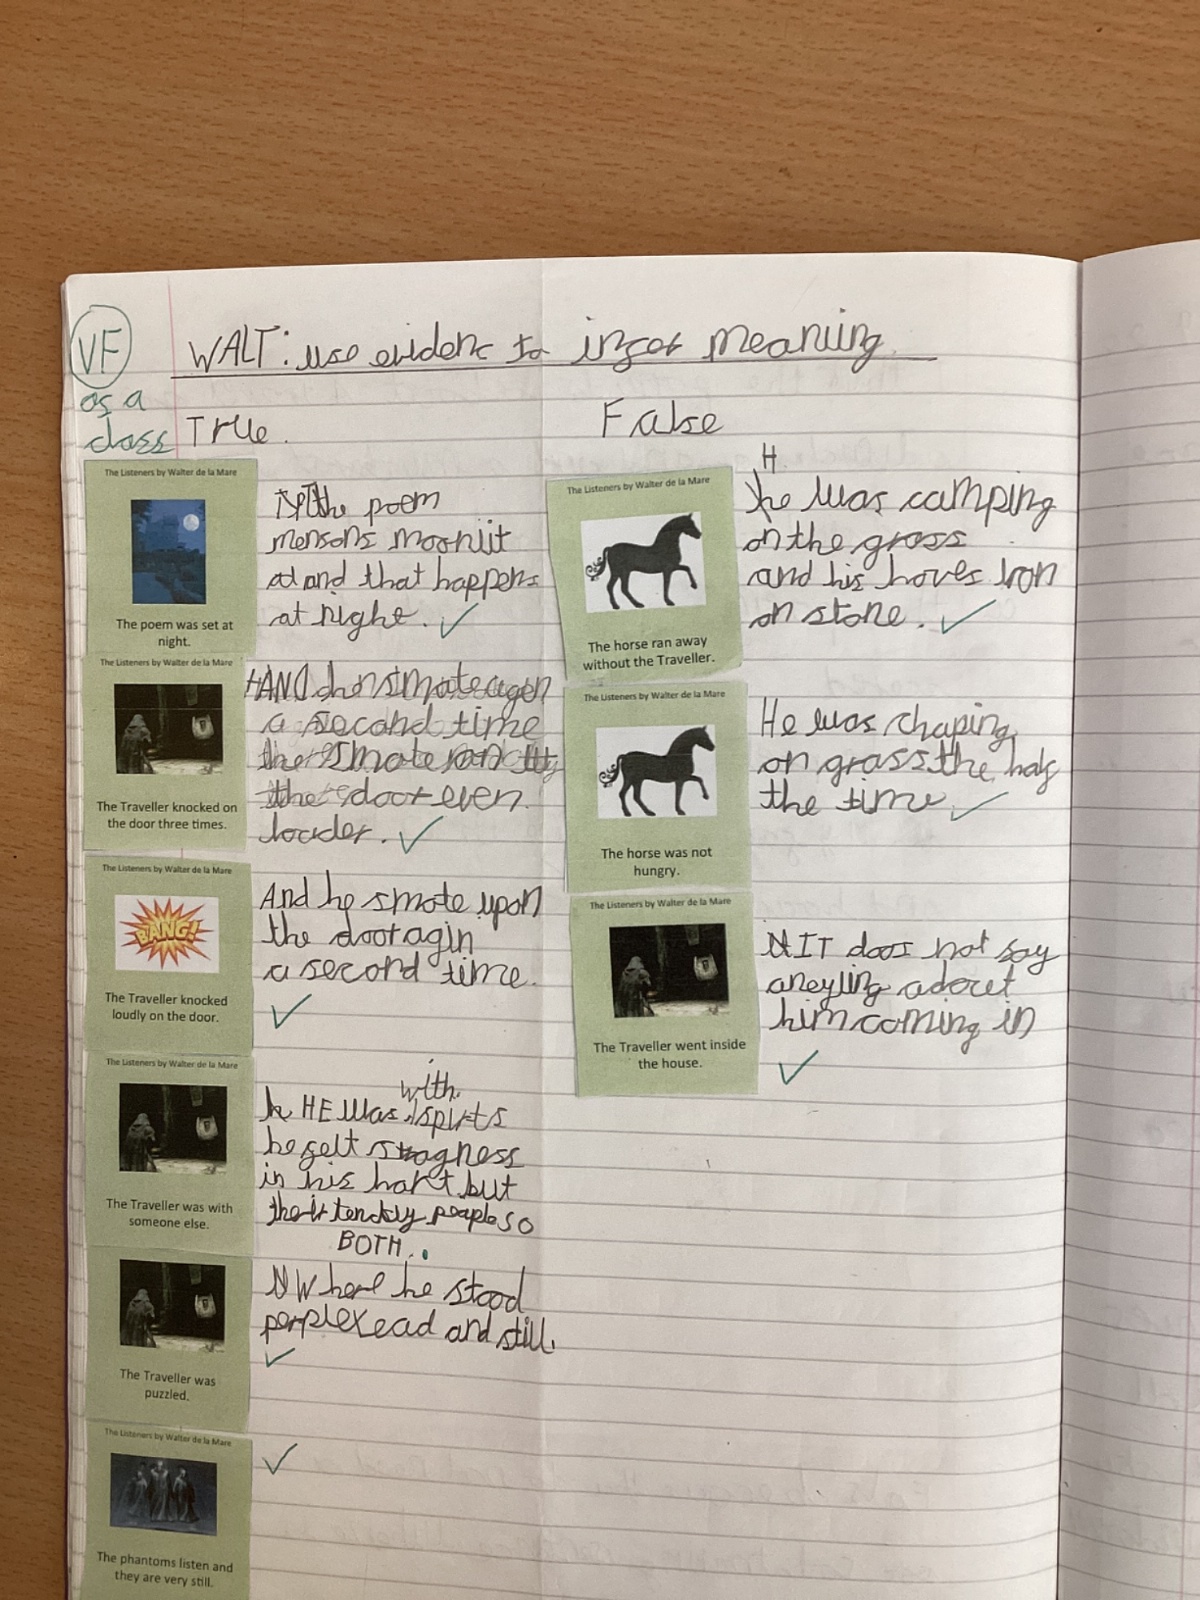 VF
as a
class
WALT: use evidenc to infer meaning
True.
The Listeners by Walter de la Mare
The poem was set at
night.
the poem
mensons moonlit
and that happens
at night.
The Listeners by Walter de la Mare
The Traveller knocked on
the door three times.
AND he smote agen
a second time
the smote
the door even
louder.
The Listeners by Walter de la Mare
BANG!
The Traveller knocked
loudly on the door.
And he smote upon
the door agin
a second time.
The Listeners by Walter de la Mare
The Traveller was with
someone else.
with
HE was spirits
he felt stragness
in his hart but
people so
BOTH.
The Traveller was
puzzled.
Where he stood
perplexead and still.
The Listeners by Walter de la Mare
The phantoms listen and
they are very still.
False
The Listeners by Walter de la Mare
The horse ran away
without the Traveller.
H
he was camping
on the grass
and his hoves iron
on stone.
The Listeners by Walter de la Mare
The horse was not
hungry.
He was chaping
on grass the half
the time
The Listeners by Walter de la Mare
The Traveller went inside
the house.
IT does not say
adout
him coming in